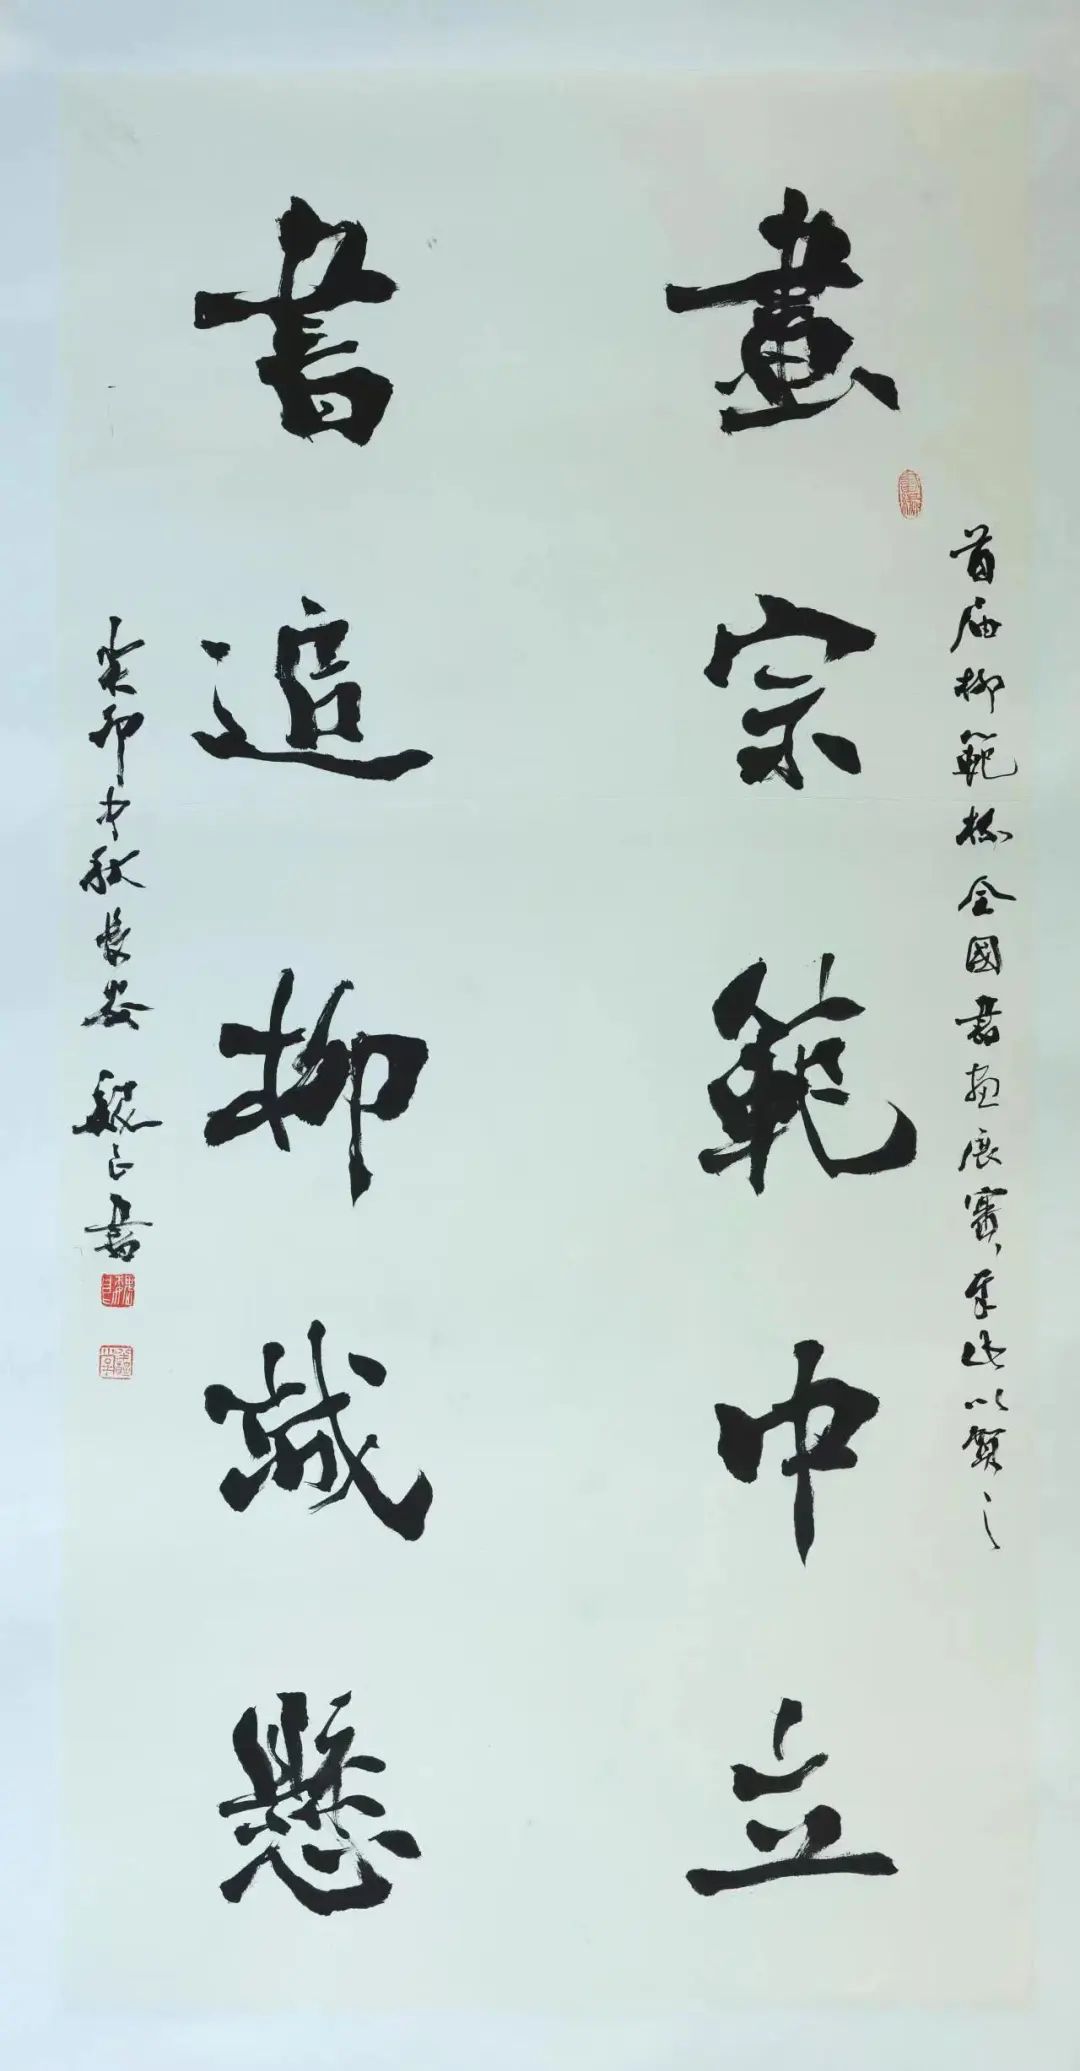 首届柳範杯全國書畫展賽此以賀之
畫宗範中立
書追柳誠懸
癸卯中秋長安 魏良書